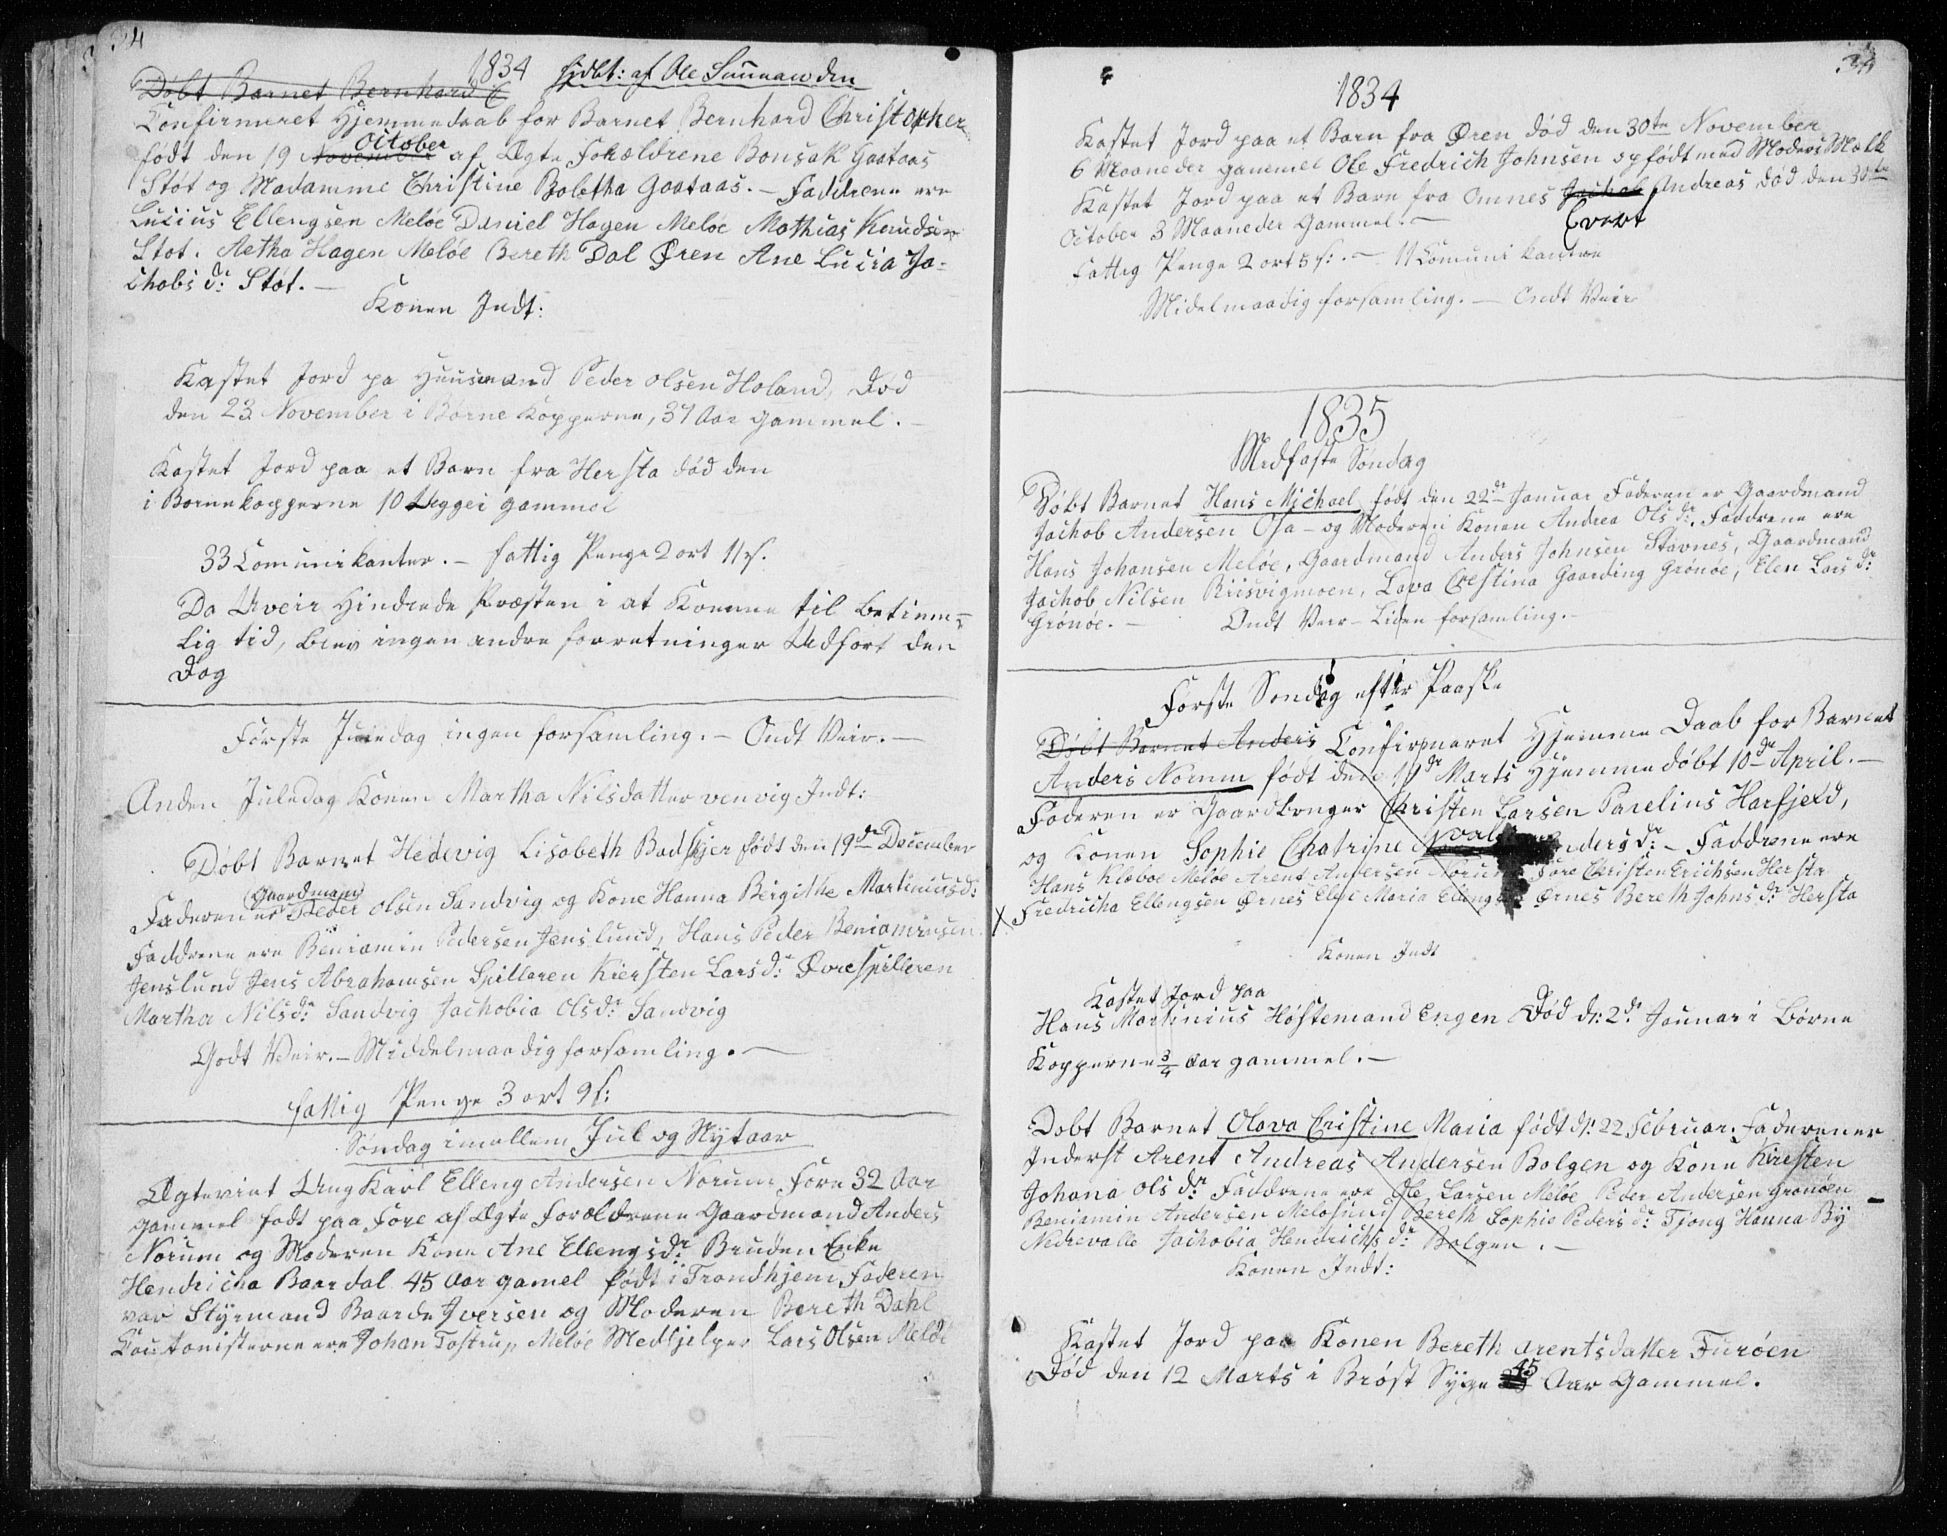 34
1834 hidbt: af Ole Sunnanden
Døbt Barnet Bernhard C
Confirmeret Hjemmedaab for Barnet Bernhard Christopher
October
født den 19 November af Ægte Forældrene Bonsak Gaataas
Støt og Madamme Christine Boletha Gaataas. – Faddrene ere
Lucius Ellengsen Meløe Daniel Hagen Meløe Mathias Knudsen
Støt. Aletha Hagen Meløe Bereth Dal Øren Ane Lucia Ja-
chobs dr: Støt. –
Konen Indt:
Kastet Jord pa Huusmand Peder Olsen Holand, Død
den 23 November i Børne Kopperne, 37 Aar gammel. –
Kastet Jord paa et Barn fra Hersta død den
i Børnekopperne 10 Ugger gammel
33 Comunikanter. – fattig Penge 2 ort 11 s.
Da Uveir Hindrede Præsten i at Komme til betim-
lig tid, blev ingen andre forretninger Udført den
Dag
Første Juledag ingen forsamling. – Ondt Veir. –
Anden Juledag Konen Martha Nilsdatter venvig Indt:
Døbt Barnet Hedevig Lisabeth Badskjer født den 19de December
Gaardmand
Faderen er Peder Olsen Sandvig og Kone Hanna Birgithe Martinusdr:
Faddrene ere Beniamin Pedersen Jenslund, Hans Peder Beniaminsen
Jenslund Jens Abrahamsen Spilleren Kiersten Larsdr: Øvrespilleren
Martha Nilsdr: Sandvig Jachobia Olsdr: Sandvig
Godt Veir. – Middelmaadig forsamling. –
fattig Penge 3 ort 9 s:
Søndag imellem Jul og Nytaar
Ægteviet Ung Karl Elleng Andersen Norum Fore 32 Aar
gammel født paa Fore af Ægte Forældrene Gaardmand Anders
Norum og Moderen Kone Ane Ellengsdr: Bruden Enke
Hendricha Baardal 45 Aar gamel født i Trondhjem Faderen
var Styrmand Baarde Iversen og Moderen Bereth Dahl
Cautonisterne ere Johan Tostrup Meløe Medhjelper Lars Olsen Meløe
1834
Kastet Jord paa et Barn fra Øren død den 30te November
6 Maaneder gammel Ole Fredrich Johnsen opfødt med Moders Mælk
Kastet Jord paa et Barn fra Omnes Jachob Andreas død den 30te
Evert
October 3 Maaneder Gammel. –
Fattig Penge 2 ort 5 s: . – 11 Comunikantere
Midelmaadig forsamling. – Ondt Veir
1835
Midfaste Søndag
Døbt Barnet Hans Michael født den 22de Januar Faderen er Gaardmand
Jachob Andersen Osa – og Moderen Konen Andrea Olsdr. Faddrene ere
Hans Johansen Meløe, Gaardmand Anders Johnsen Stavnes, Gaardmand
Jachob Nilsen Riisvigmoen, Lava Crestina Gaarding Grønøe, Elen Larsdr:
Grønøe. – Ondt Veir – Liden forsamling. –
Første Søndag efter Paaske
Døbt Barnet Anders Confirmeret Hjemme Daab for Barnet
Anders Norum født den 11de Marts Hjemmedøbt 10de April. –
Faderen er Gaardbruger Christen Larsen Parelius Harfjeld,
og Konen Sophie Chatrine Andersdr: – Faddrene ere
Hans Klæboe Meløe Arent Andersen Norum Fore Christen Erichsen Hersta
x Fredricha Ellengsen Ørnes Else Maria Ellingsdr Ørnes Bereth Johnsdr: Hersta
Konen Indt
Kastet Jord paa
Hans Martinius Høstemand Engen Død d: 2de Januar i Børne
Kopperne 3/4 Aar gammel. –
Døbt Barnet Olava Cristine Maria født d: 22 Februar. Faderen er
Inderst Arent Andreas Andersen Bolgen og Kone Kiersten
Johana Olsdr Faddrene ere Ole Larsen Meløe Peder Andersen Grønøen
Beniamin Andersen Meløsund Bereth Sophie Pedersdr: Tjong Hanna By
Nedrevalle Jachobia Hendrichsdr: Bolgen. –
Konen Indt:
Kastet Jord paa Konen Bereth Arentsdatter Furøen
45
Død den 12 Marts i Brøst Syge Aar Gammel.